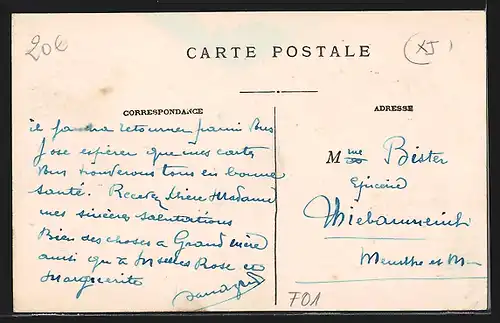 206
(XJ)
CARTE POSTALE
CORRESPONDANCE
ADRESSE
il faudra retourner parmi Vous
J'ose espérer que mes cartes
Vous trouverons tous en bonne
santé. Recevez chère Madame
mes sincères salutations
Bien des choses à Grand mère
ainsi qu'à Mselles Rose et
Marguerite
Mme Bister
Epicerie
Meurthe et M
701